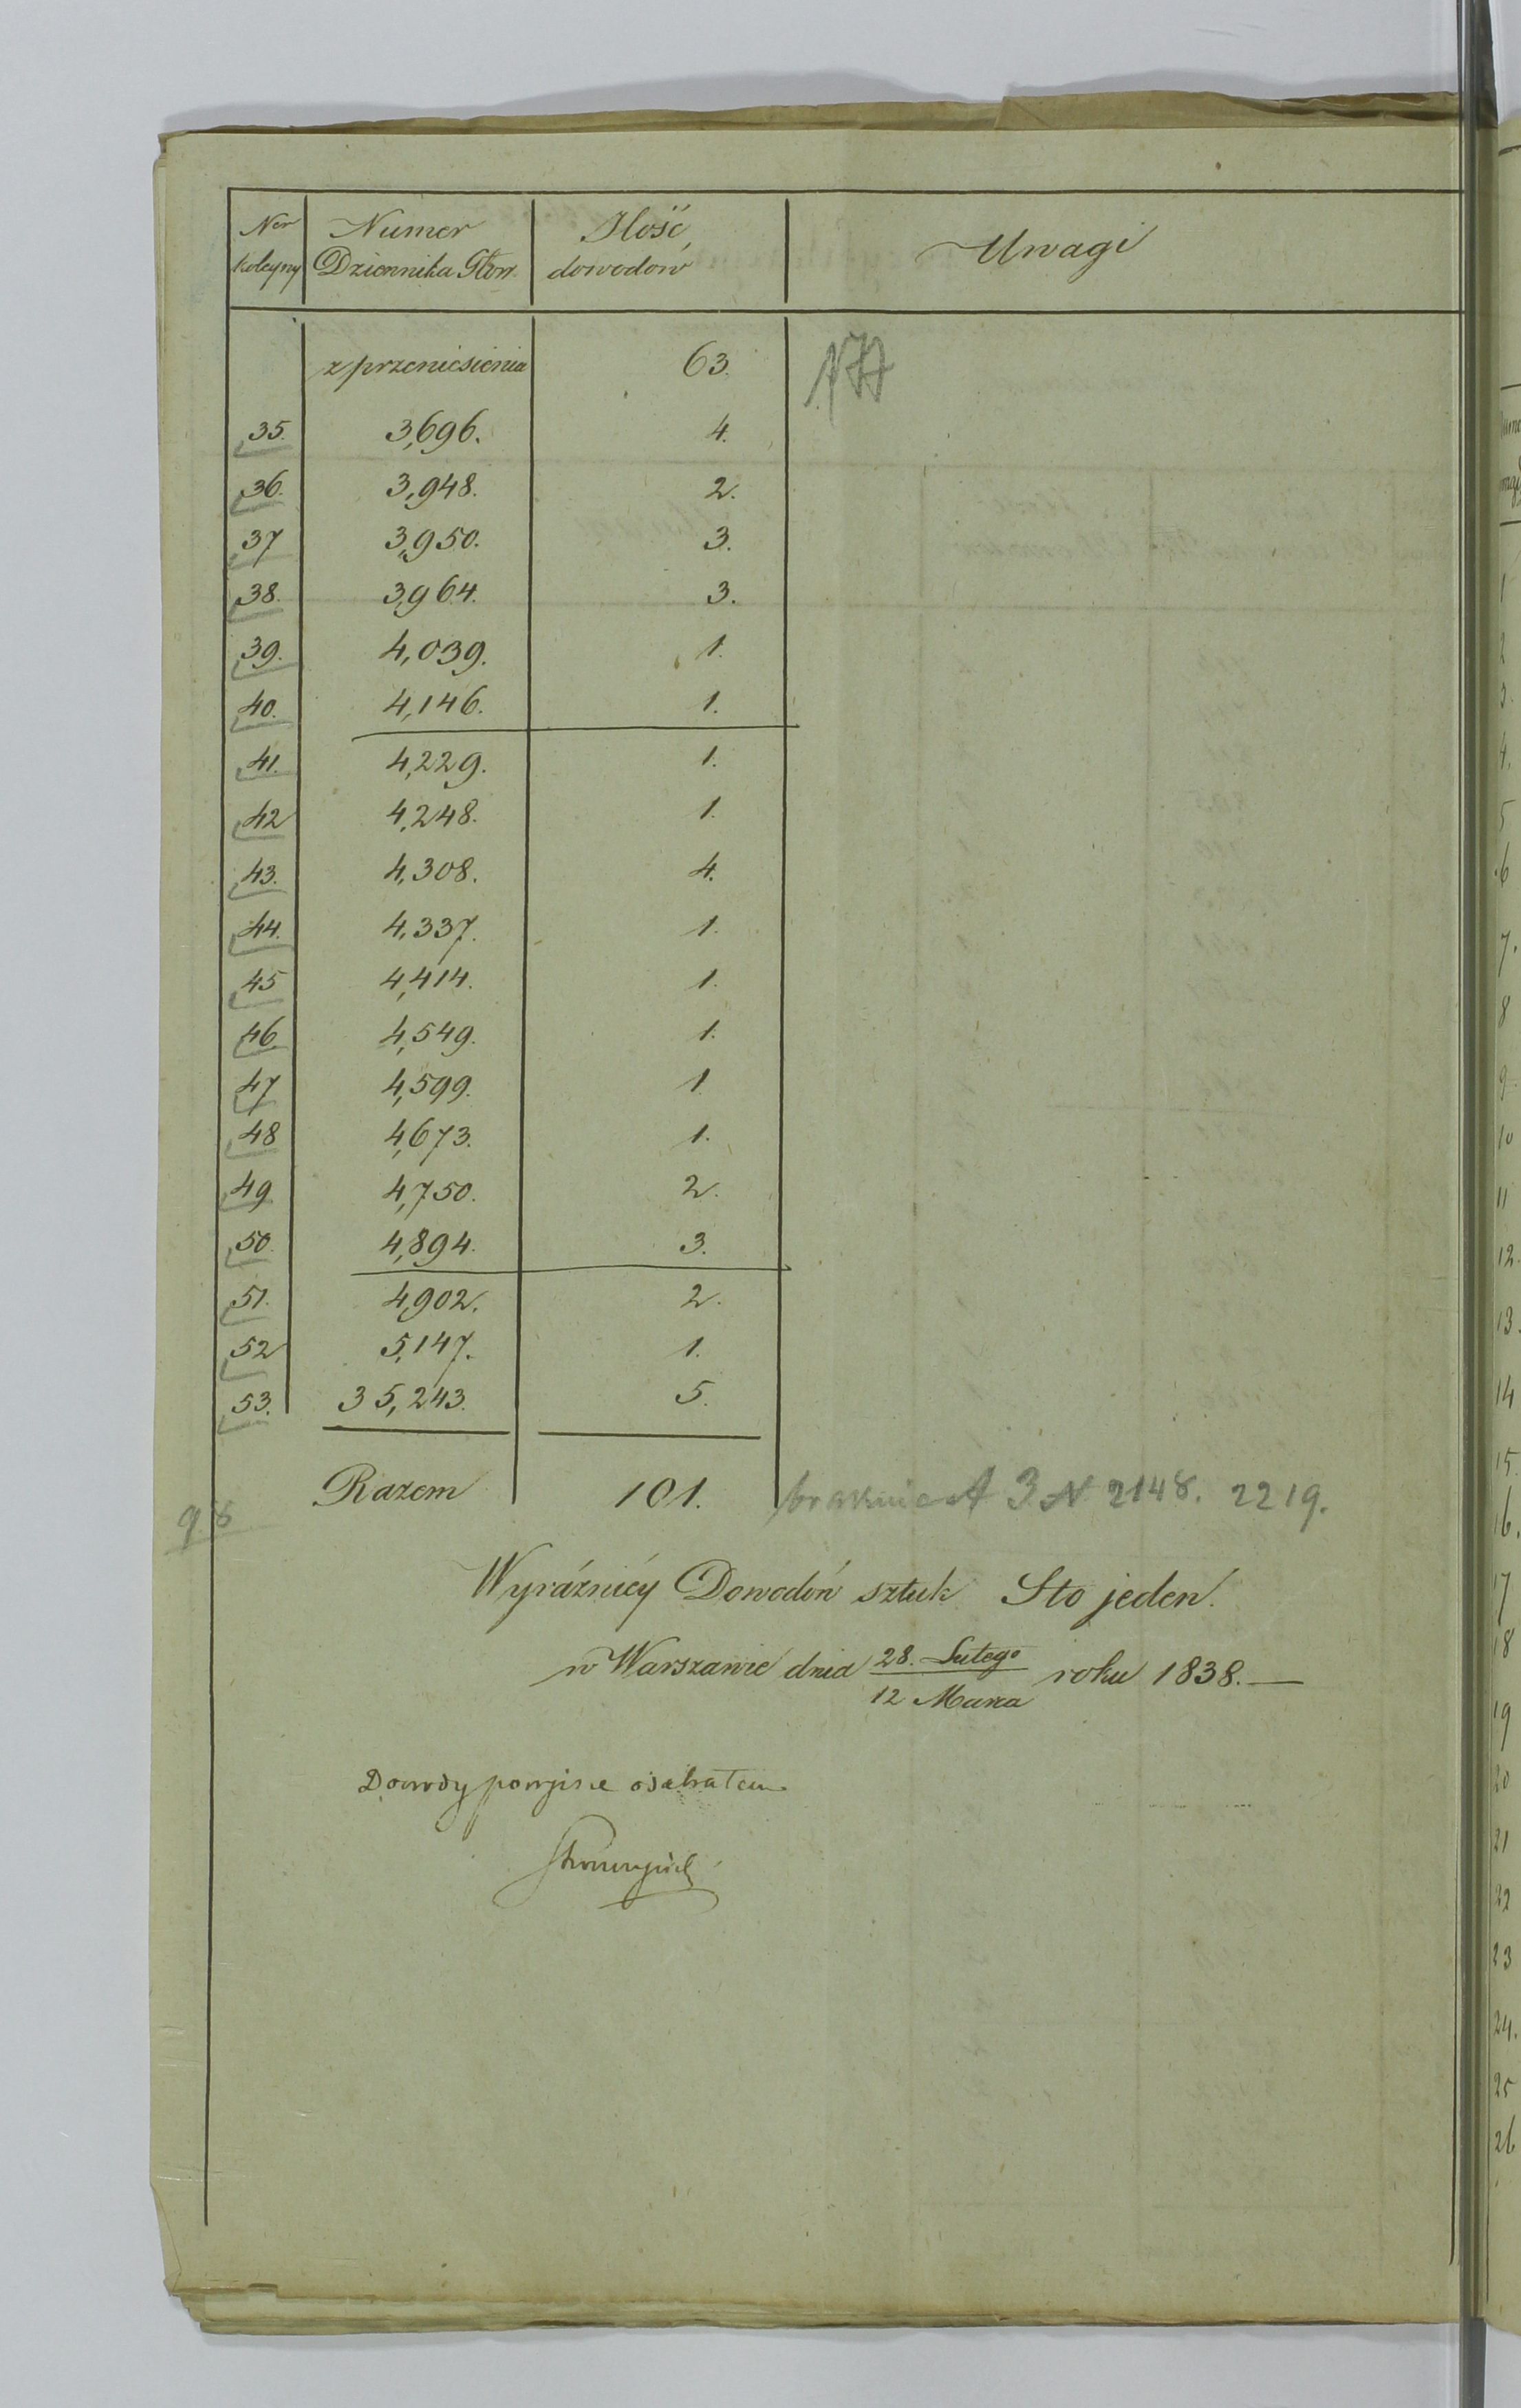 Ner kolejny Numer Dziennika Głow. Ilość dowodów Uwagi
z przeniesienia 63.
35. 3,696. 4.
36. 3,948. 2.
37 3,950. 3.
38. 3,964. 3.
39. 4,039. 1.
40. 4,146. 1.
41. 4,229. 1.
42 4,248. 1.
43. 4,308. 4.
44. 4,337. 1.
45 4,414. 1.
46 4,549. 1.
47 4,599. 1
48 4,673. 1.
49 4,750. 2.
50. 4,894. 3.
51. 4,902. 2.
52 5,147. 1.
53. 35,243. 5.
Razem 101. braknie A 3 N 2148. 2219.
98
Wyráźniéy Dowodów sztuk Sto jeden.
w Warszawie dnia 28. Lutego
12 Marca roku 1838.—
Dowody powyższe odebrałem
1
2
3.
4.
5
6
7.
8
9.
10
11
12.
13.
14
15.
16.
17
18
19
20
21
22
23
24.
25
26